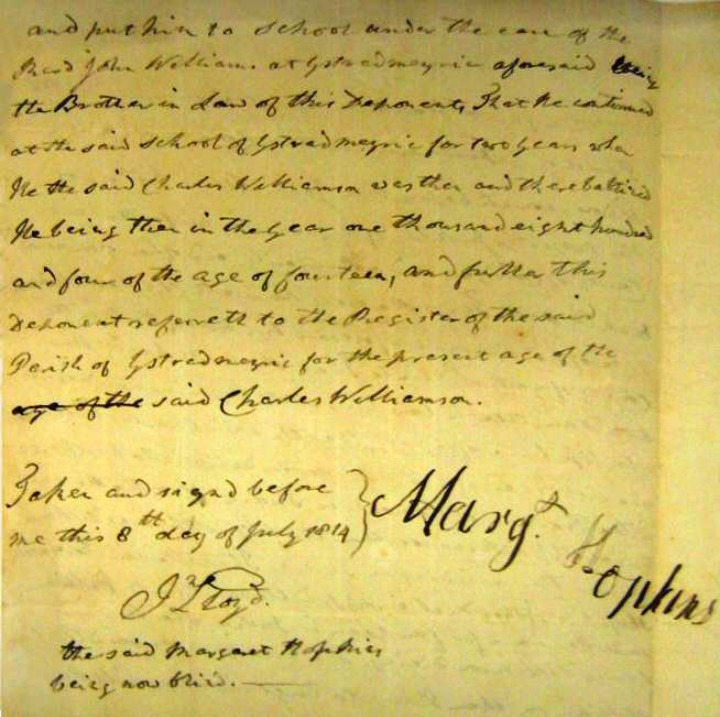 and put him to school under the care of the
Revd John Williams at Ystradmeyric aforesaid being
the Brother in Law of this Deponent, That he continued
at the said school of Ystradmeyric for two years when
He the said Charles Williamson was then and there batized
He being then in the year one thousand eight hundred
and four of the age of fourteen, and further this
Deponent referreth to the Register of the said
Parish of Ystradmeyric for the present age of the
age of the said Charles Williamson.
Taken and signd before
me this 8th day of July 1814
Margt. Hopkins
Jno Lloyd.
the said Margaret Hopkins
being now blind.